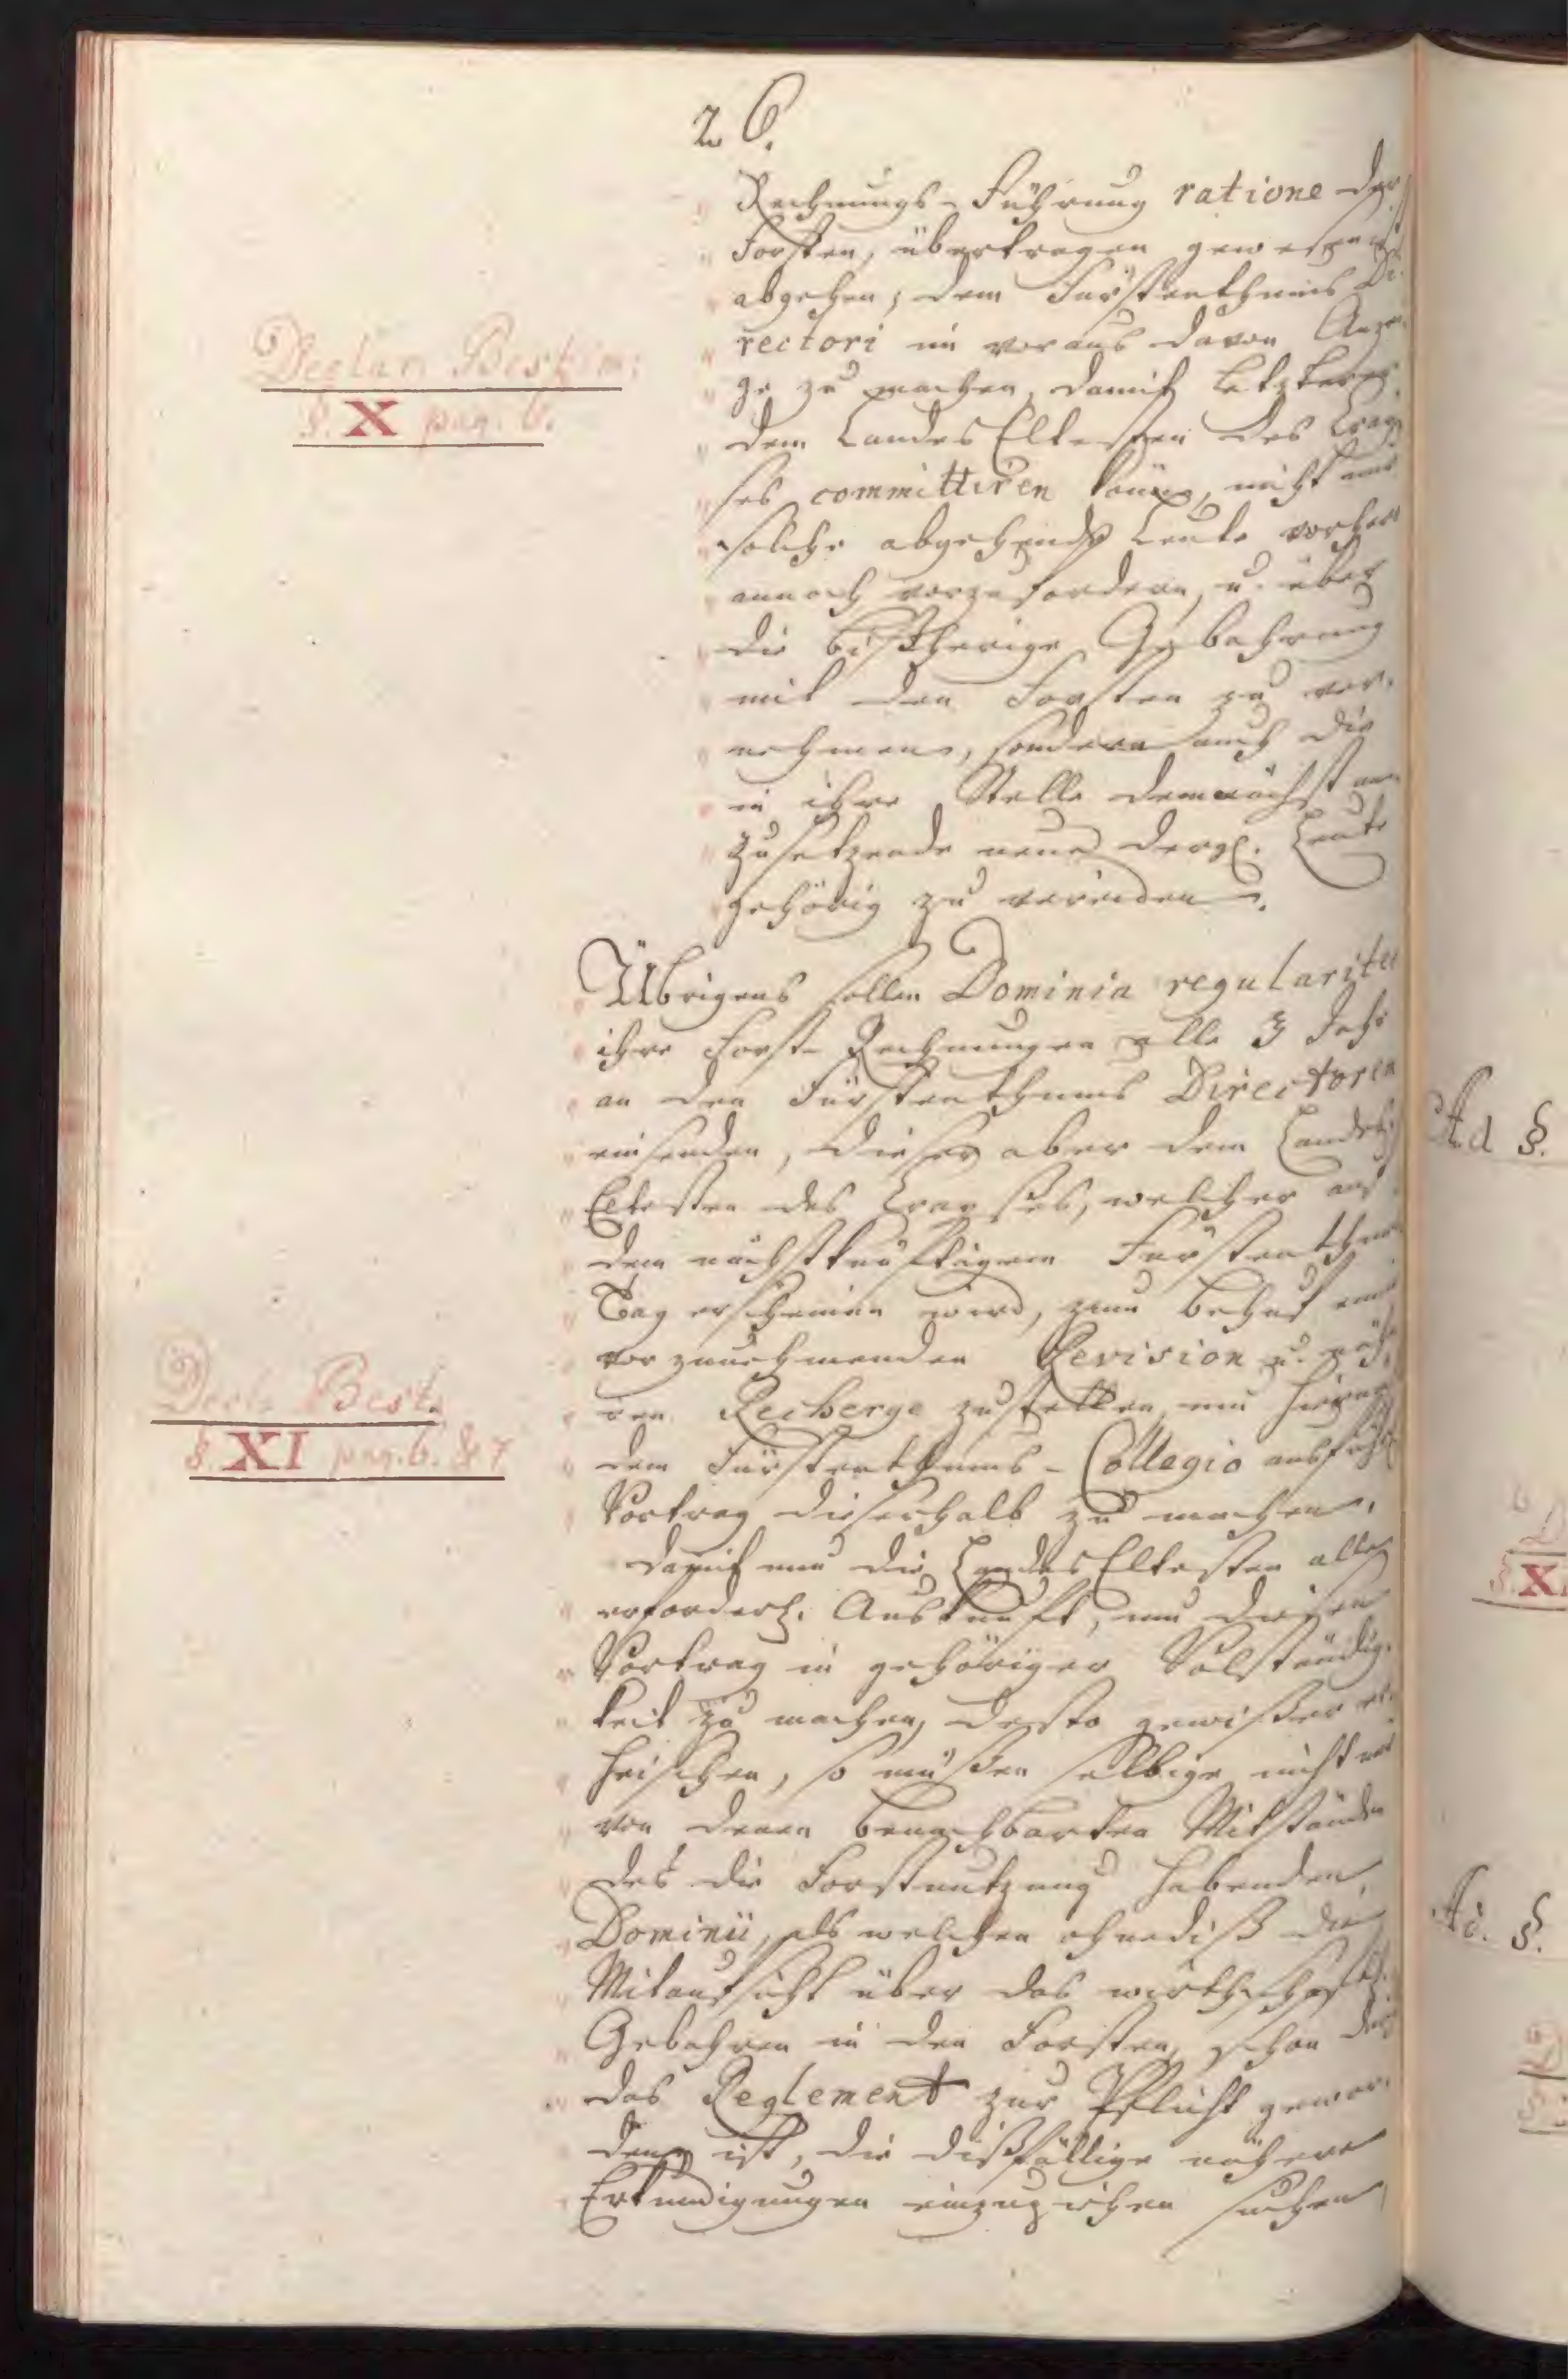 26.
Rechnungs-Führung ratione der
Forsten, übertragen gewesen ist
abgehen, dem Fürstenthums Di-
rectori im voraus davon Anzei-
ge zu machen, damit letzterer
dem LandesEltesten des Cray-
ses committiren könne, nicht nur
solche abgehende Leute vorher
annoch vorzufordern, u. über
die bißherige Gebahrung
mit den Forsten zu ver-
nehmen, sondern auch die
in ihre Stelle demnächst an-
zusetzende neue dergl. Leute
gehörig zu vereiden.
Declar. Bestim:
§. X pag. 6.
Übrigens sollen Dominia regulariter
ihre Forst-Rechnungen alle 3 Jahr
an den Fürstenthums Directoren
einsenden, dieser aber dem Landes
Eltesten des Crayses, welcher auf
dem nächstkünftigem Fürstenthums
Tag erscheinen wird, zum Behuf einer
vorzunehmenden Revision u.
Recherge zustellen, um hiernach
dem Fürstenthums-Collegio ausführl.
Vortrag dieserhalb zu machen.
Decl. Best.
§. XI pag. 6. & 7
Damit nun die LandesEltesten alle
erforderl. Auskunft, um diesen
Vortrag in gehöriger Volständig-
keit zu machen, desto gewißer er-
heischen, so müßen selbige nicht nur
von denen benachbarten Mitständen
des die Forstnutzung habenden
Dominii, als welchen ohnediß die
Mitaufsicht über das wirthschaftl.
Gebahren in den Forsten, schon durch
das Reglement zur Pflicht gewor-
den ist, die dißfällige nähere
Erkundigungen einzuziehen suchen,
Ad §.
§. X
Ad. §.